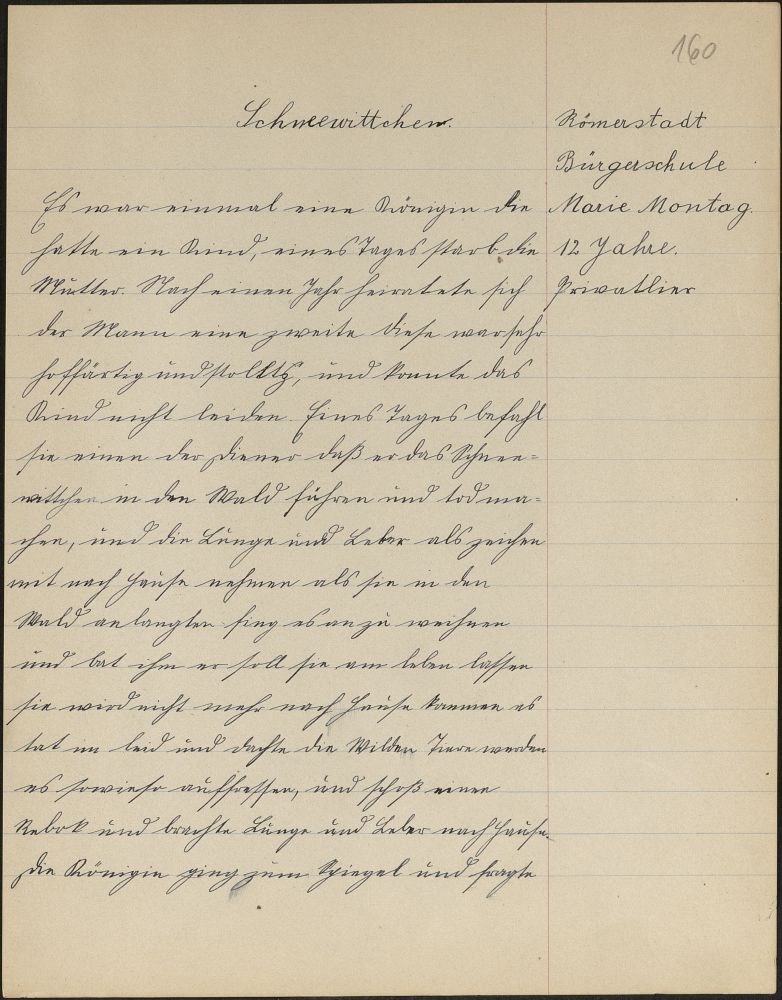 160
Schneewittchen.
Es war einmal eine Königin die
hatte ein Kind, eines Tages starb die
Mutter. Nach einen Jahr heiratete sich
der Mann eine zweite diese war sehr
hoffärtig und stolltz, und konnte das
Kind nicht leiden. Eines Tages befahl
sie einen der Diener daß er das Schnee=
wittchen in den Wald führen und tod ma=
chen, und die Lunge und Leber als zeichen
mit nach Hause nehmen als sie in den
Wald anlangten fing es an zu weihnen
und bat ihm er soll sie am leben lassen
sie wird nicht mehr nach Hause kommen es
tat im leid und dachte die Wilden Tiere werden
es sowieso auffressen, und schoß einen
Rebok und brachte Lunge und Leber nach Hause.
Die Königin ging zum Spiegel und fragte
Römerstadt
Bürgerschule
Marie Montag.
12 Jahre.
Privatlier